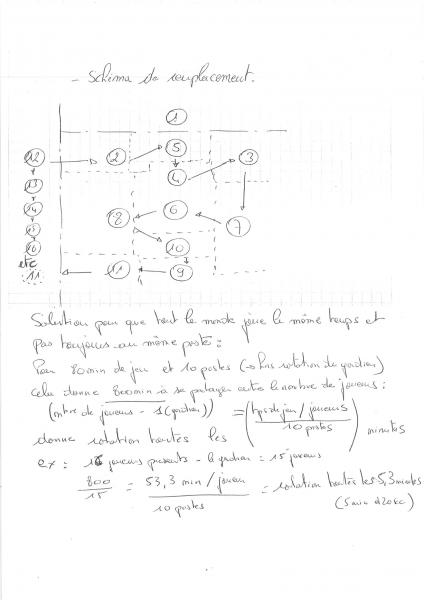 - Schéma de remplacement.
1
12 2 5 3
13 4
14 8 6 7
15
16 10
etc
11 11 9
Solution pour que tout le monde joue le même temps et
pas toujours au même poste :
Pour 80 min de jeu et 10 postes (→ hors rotation du gardien)
cela donne 800 min à se partager entre le nombre de joueurs :
(nbre de joueurs - 1 (gardien)) = (tps de jeu / joueurs
10 postes) minutes
donne rotation toutes les
ex : 16 joueurs présents - le gardien = 15 joueurs
800 / 15 = 53,3 min / joueur / 10 postes = rotation toutes les 5,3 minutes
(5 min et 20 sec)